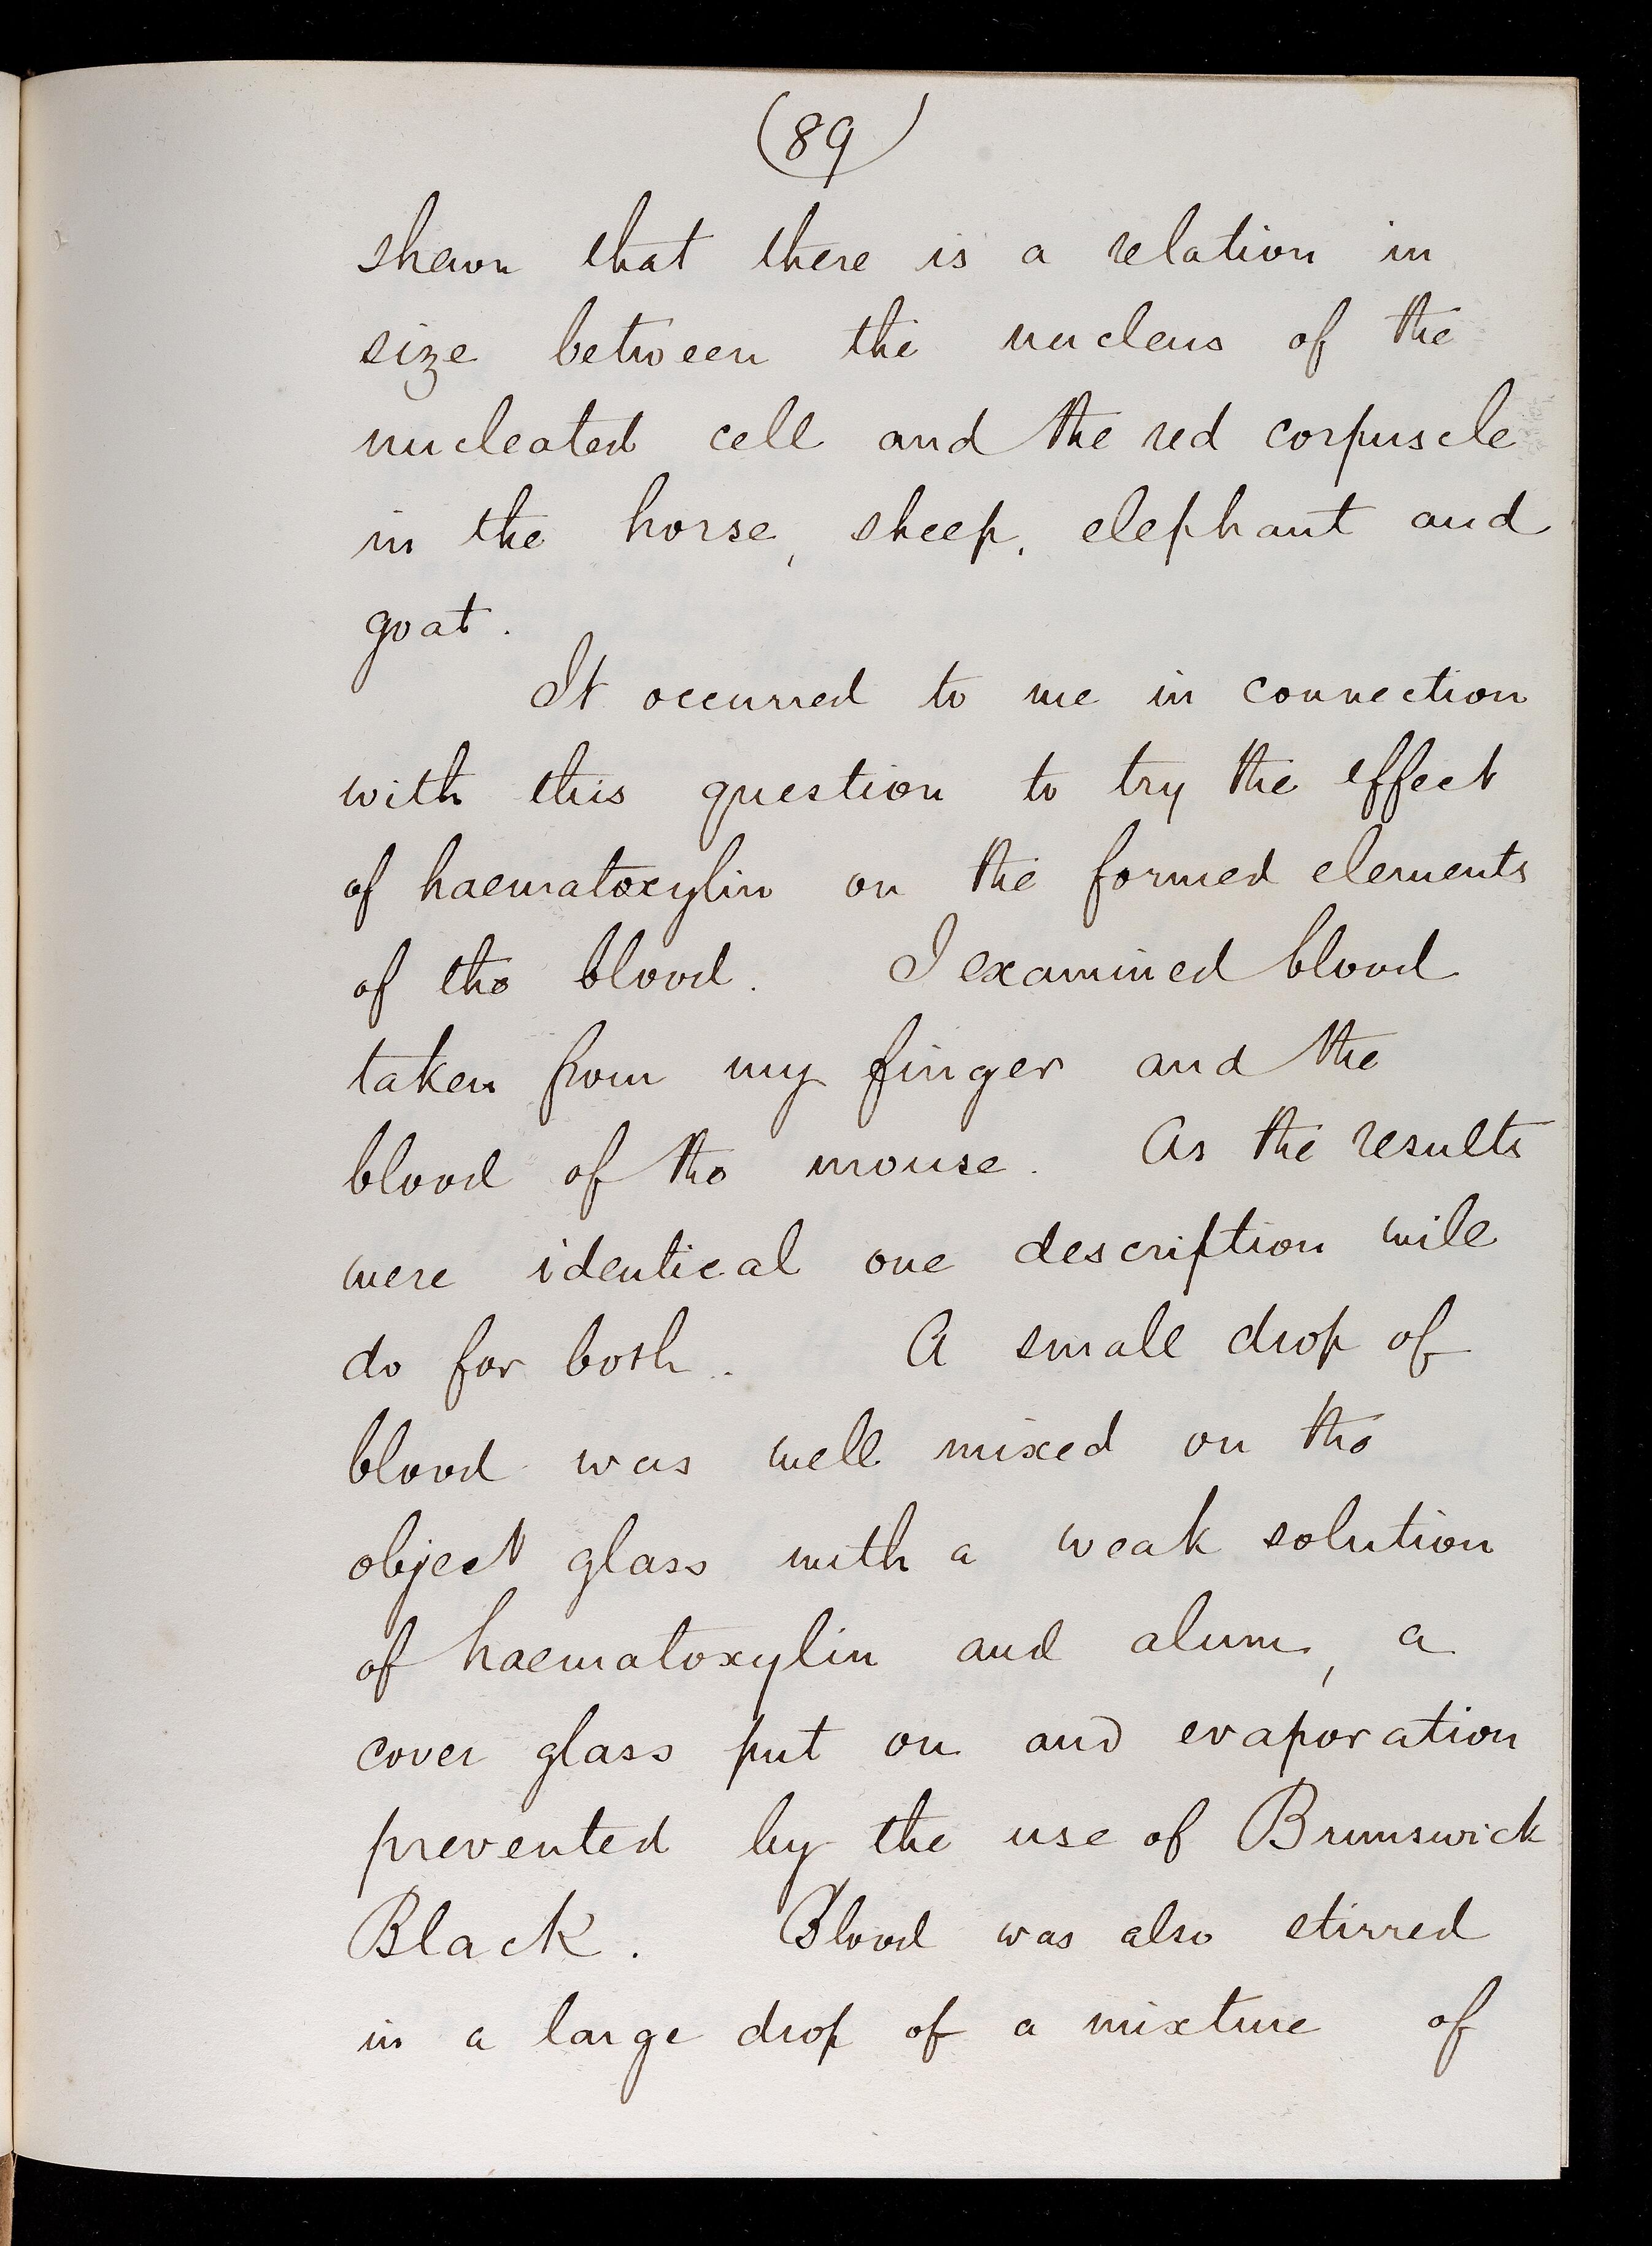 (89)
shewn that there is a relation in
size between the nucleus of the
nucleated cell and the red corpuscle
in the horse, sheep, elephant and
goat.
It occurred to me in connection
with this question to try the effect
of haematoxylin on the formed elements
of the blood. I examined blood
taken from my finger and the
blood of the mouse. As the results
were identical one description will
do for both. A small drop of
blood was well mixed on the
object glass with a weak solution
of haematoxylin and alum, a
cover glass put on and evaporation
prevented by the use of Brunswick
Black. Blood was also stirred
in a large drop of a mixture of